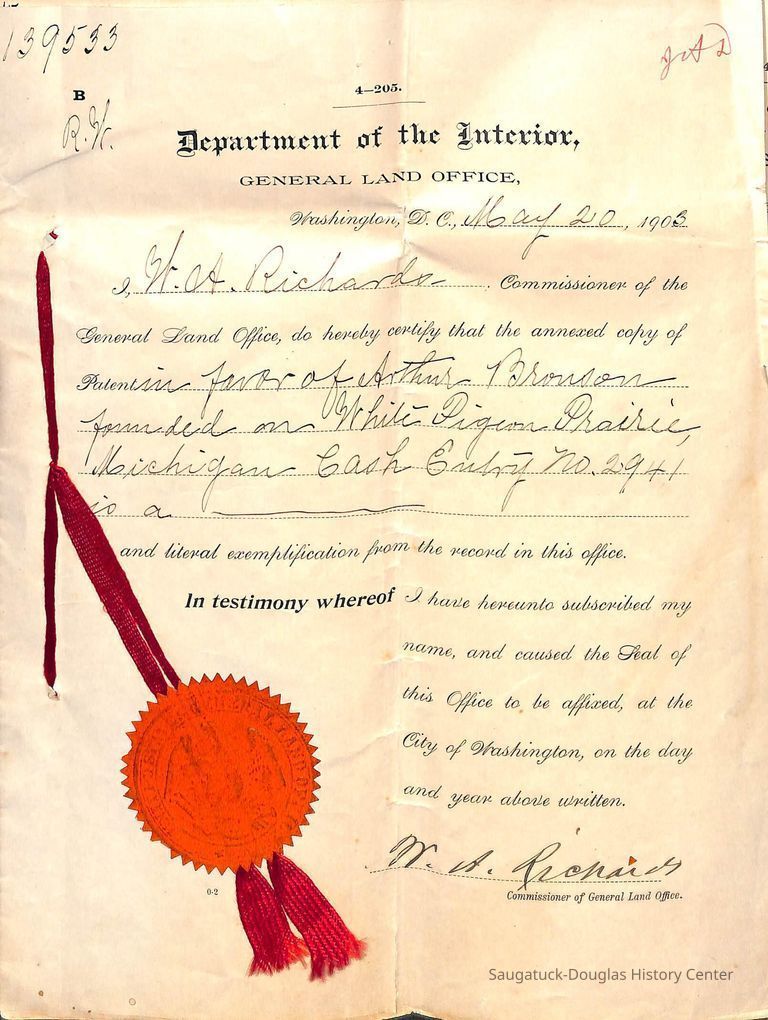 139533
J A D
B
4—205.
R.W.
Department of the Interior,
GENERAL LAND OFFICE,
Washington, D. C., May 20, 1903
I, W. A. Richards Commissioner of the
General Land Office, do hereby certify that the annexed copy of
Patent in favor of Arthur Bronson
founded on White Pigeon Prairie,
Michigan Cash Entry No. 2941
is a
and literal exemplification from the record in this office.
In testimony whereof I have hereunto subscribed my
name, and caused the Seal of
this Office to be affixed, at the
City of Washington, on the day
and year above written.
W. A. Richards
Commissioner of General Land Office.
0-2
Saugatuck-Douglas History Center